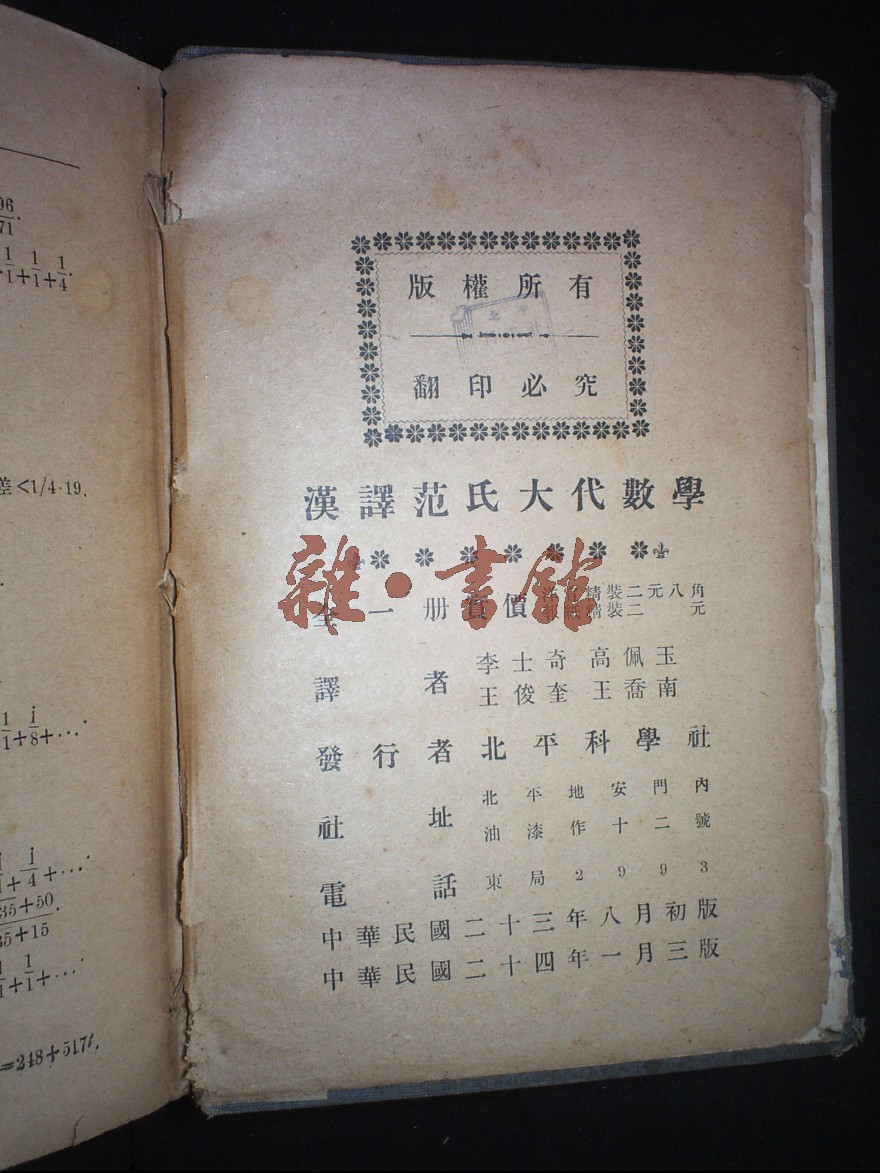 96
71
1/1+1/1+1/4.
差<1/4·19.
1/1+1/8+….
1+1/4+….
35+50
35+15.
1/1+1/1+….
=248+517t.
版權所有
北平
翻印必究
漢譯范氏大代數學
雜·書館
全一册實價 精裝二元八角
報紙精裝二元
譯者 李士奇 高佩玉
王俊奎 王喬南
發行者北平科學社
社址 北平地安門內
油漆作十二號
電話 東局2993
中華民國二十三年八月初版
中華民國二十四年一月三版